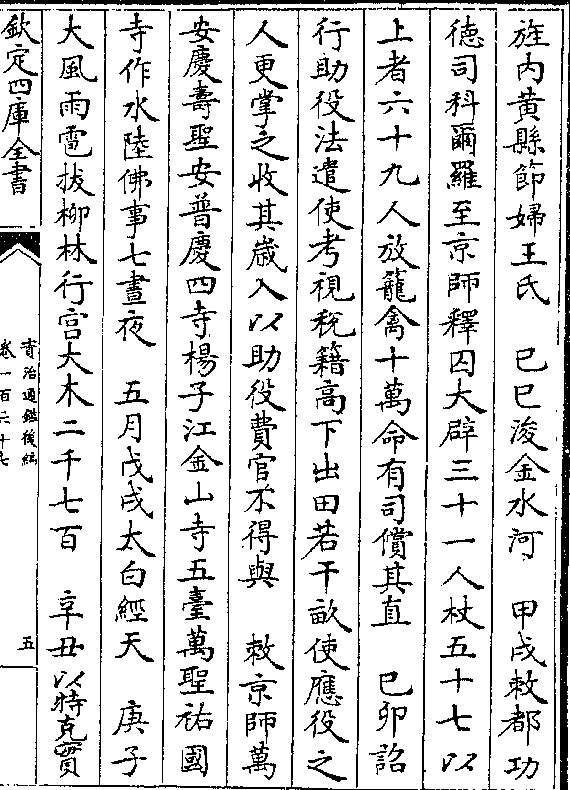 旌内黄縣節婦王氏　己巳浚金水河　甲戌敕都功
徳司科爾羅至京師釋囚大辟三十一人杖五十七以
上者六十九人放籠禽十萬命有司償其直　己卯詔
行助役法遣使考視税籍高下出田若干畝使應役之
人更掌之收其歳入以助役費官不得與　敕京師萬
安慶壽聖安普慶四寺楊子江金山寺五臺萬聖祐國
寺作水陸佛事七晝夜　五月戊戌太白經天　庚子
大風雨雹拔柳林行宫大木二千七百　辛丑以特克實
欽定四庫全書
資治通鑑後編
卷一百六十七
五